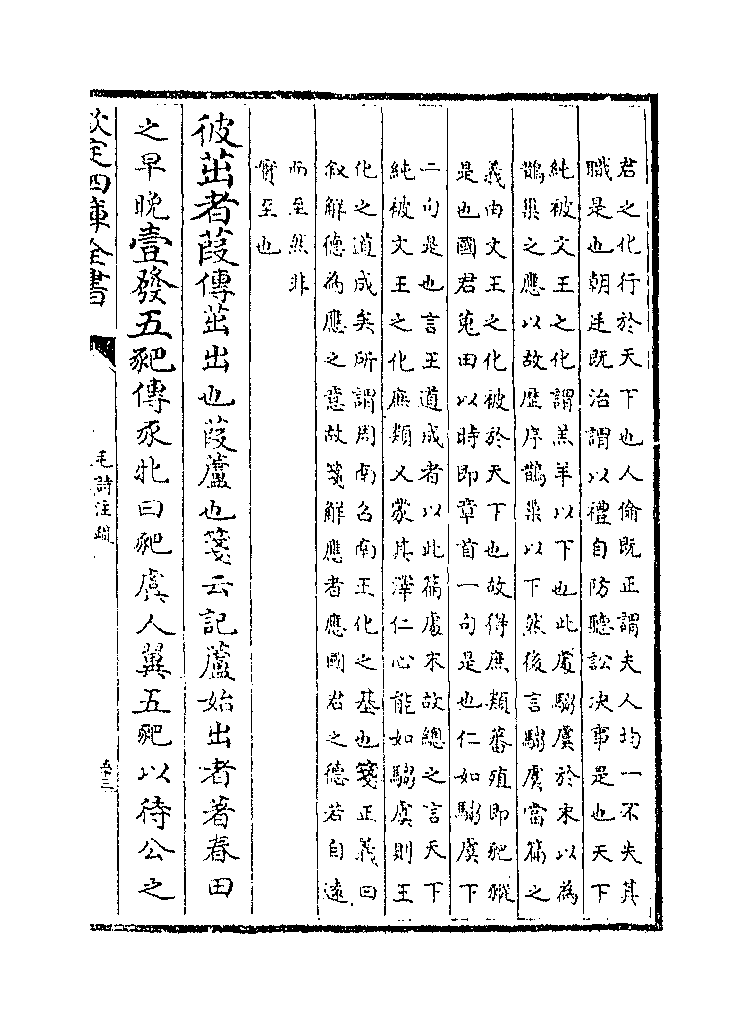 君之化行於天下也人倫既正謂夫人均一不失其
職是也朝廷既治謂以禮自防聽訟決事是也天下
純被文王之化謂羔羊以下也此處騶虞於末以為
鵲巢之應以故歴序鵲巢以下然後言騶虞當篇之
義由文王之化被於天下也故得庶類蕃殖即豝豵
是也國君蒐田以時即章首一句是也仁如騶虞下
二句是也言王道成者以此篇處末故總之言天下
純被文王之化庶類又蒙其澤仁心能如騶虞則王
化之道成矣所謂周南召南王化之基也箋正義曰
叙解德為應之意故箋解應者應國君之德若自逺
而至然非
實至也
彼茁者葭傳茁出也葭蘆也箋云記蘆始出者著春田
之早晚壹發五豝傳豕牝曰豝虞人翼五豝以待公之
欽定四庫全書
毛詩注疏
五十三